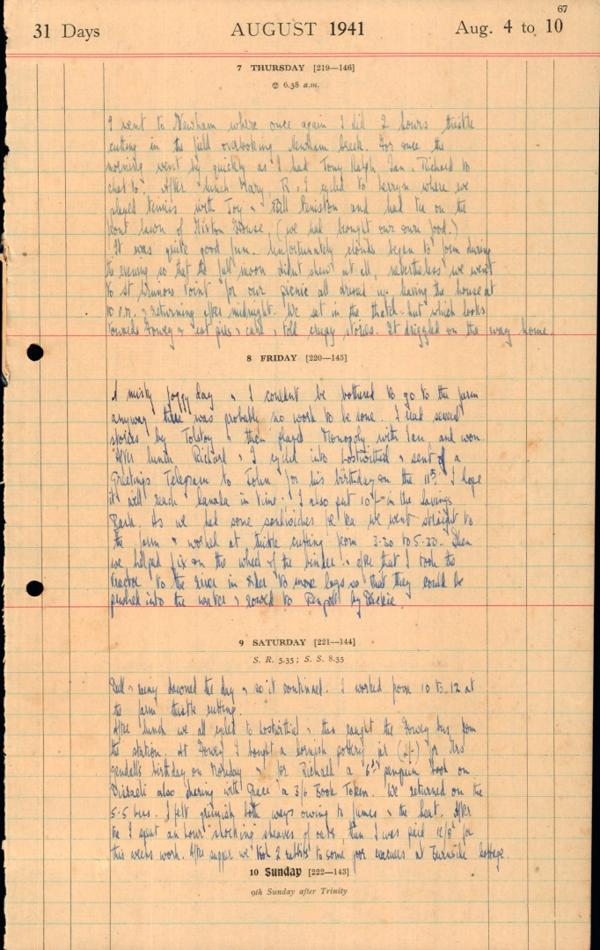 67
31 Days AUGUST 1941 Aug. 4 to 10
7 THURSDAY [219—146]
6.38 a.m.
I went to Newham where once again I did 2 hours thistle
cutting in the field overlooking Newham Creek. For once the
morning went by quickly as I had Tony, Ralph, Ian, Richard to
chat to. After lunch Mary, R, I cycled to where we
played tennis with Joy & Bill and had tea on the
front lawn of House, (we had brought our own food.)
It was quite good fun. Unfortunately clouds began to form during
the evening so that the full moon didn't show at all, nevertheless we went
to St Point for our picnic all dressed up leaving the house at
10 P.M. & returning after midnight. We sat in the thatch-hut which looks
towards Fowey & eat pies & cake, & told creepy stories. It drizzled on the way home.
8 FRIDAY [220—145]
A misty foggy day & I couldn't be bothered to go to the farm
anyway there was probably no work to be done. I read several
stories by Tolstoy & then played Monopoly with Ian, and won.
After lunch Richard & I cycled into Lostwithiel & sent of a
Greetings Telegram to John for his birthday on the 11th. I hope
it will reach Canada in time. I also put 10/- in the Savings
Bank. As we had some sandwiches for tea we went straight to
the farm & worked at thistle cutting from 3-30 to 5-30. Then
we helped fix on the wheel of the binder & after that I took the
tractor to the river in order to move logs so that they could be
pushed into the water & rowed to by
9 SATURDAY [221—144]
S. R. 5.35; S. S. 8.35
Dull & rainy dawned the day & so it continued. I worked from 10 to 12 at
the farm thistle cutting.
After lunch we all cycled to Lostwithiel & then caught the Fowey bus from
the station. At Fowey I bought a Cornish pottery jar (2/-) for Mrs
birthday on Monday & for Richard a 6d penguin book on
Disraeli also sharing with Grace a 3/6 Book Token. We returned on the
5-5 bus. I felt greenish both ways owing to fumes & the heat. After
tea I spent an hour shocking sheaves of oats, then I was paid 12/8 for
this weeks work. After supper we took 2 rabbits to some poor evacuees at Burnside Cottage.
10 Sunday [222—143]
9th Sunday after Trinity